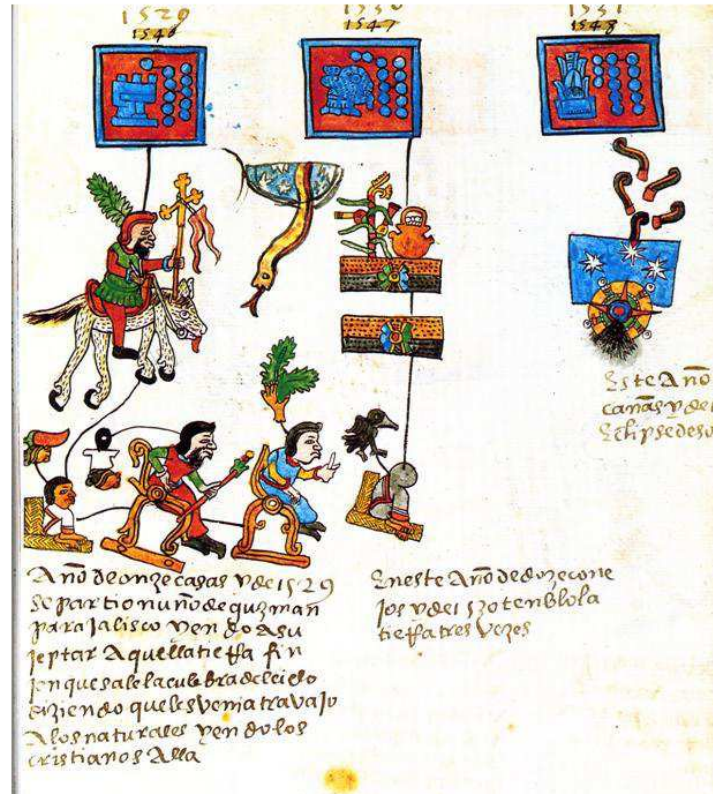 1529
1546
1530
1547
1531
1548
Este Año
cañas y de
Eclipse de so
Año de onze casas y de 1529
se partio nuño de guzman
para Jalisco yendo a su
jeptar Aquella tieRRa fin
jen que sale la culebra del cielo
diziendo que les venia travajo
A los naturales yendo los
cristianos Alla
En este Año de doze cone
jos y de 1530 tenblo la
tieRRa tres vezes